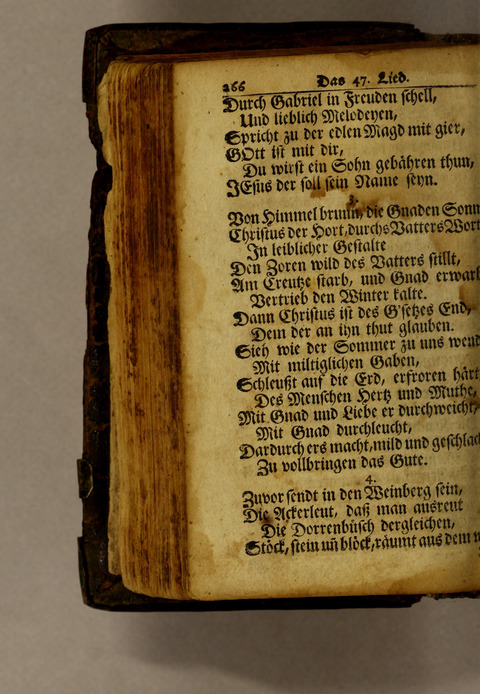 266 Das 47. Lied.
Durch Gabriel in Freuden schell,
Und lieblich Melodeyen,
Spricht zu der edlen Magd mit gier,
GOtt ist mit dir,
Du wirst ein Sohn gebähren thun,
JEsus der soll sein Name seyn.
3.
Von Himmel brunn, die Gnaden Sonn
Christus der Hort, durchs Vatters Wort
In leiblicher Gestalte
Den Zoren wild des Vatters stillt,
Am Creutze starb, und Gnad erwarb
Vertrieb den Winter kalte.
Dann Christus ist des G'setzes End,
Dem der an ihn thut glauben.
Sieh wie der Sommer zu uns wend
Mit miltiglichen Gaben,
Schleußt auf die Erd, erfroren härt
Des Menschen Hertz und Muthe,
Mit Gnad und Liebe er durchweicht,
Mit Gnad durchleucht,
Dardurch ers macht, mild und geschlach
Zu vollbringen das Gute.
4.
Zuvor sendt in den Weinberg sein,
Die Ackerleut, daß man ausreut
Die Dorrenbüsch dergleichen,
Stöck, stein uñ blöck, räumt aus dem